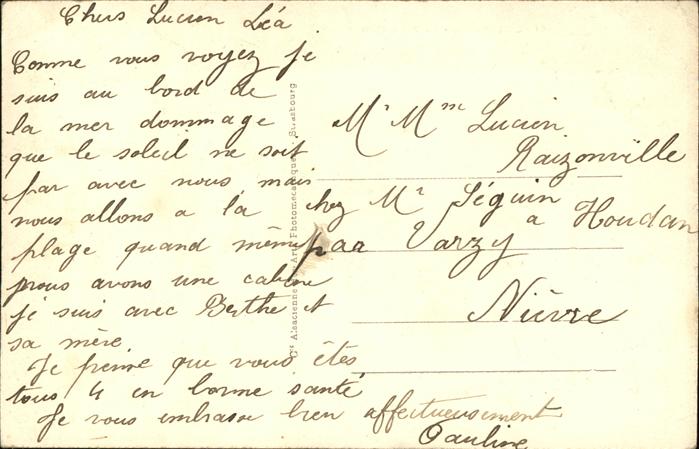 Chers Lucien Léa
Comme vous voyez je
suis au bord de
la mer dommage
que le soleil ne soit
par avec nous mais
nous allons a la
plage quand même
nous avons une cabine
je suis avec Berthe et
sa mère
Je pense que vous êtes
tous 4 en bonne santé
Je vous embrasse bien affectueusement
Pauline
Mr Mme Lucien
Raizonville
chez Mr Séguin
a Houdan
par Varzy
Nièvre
Cie Alsacienne des Arts Photomécaniques, Strasbourg